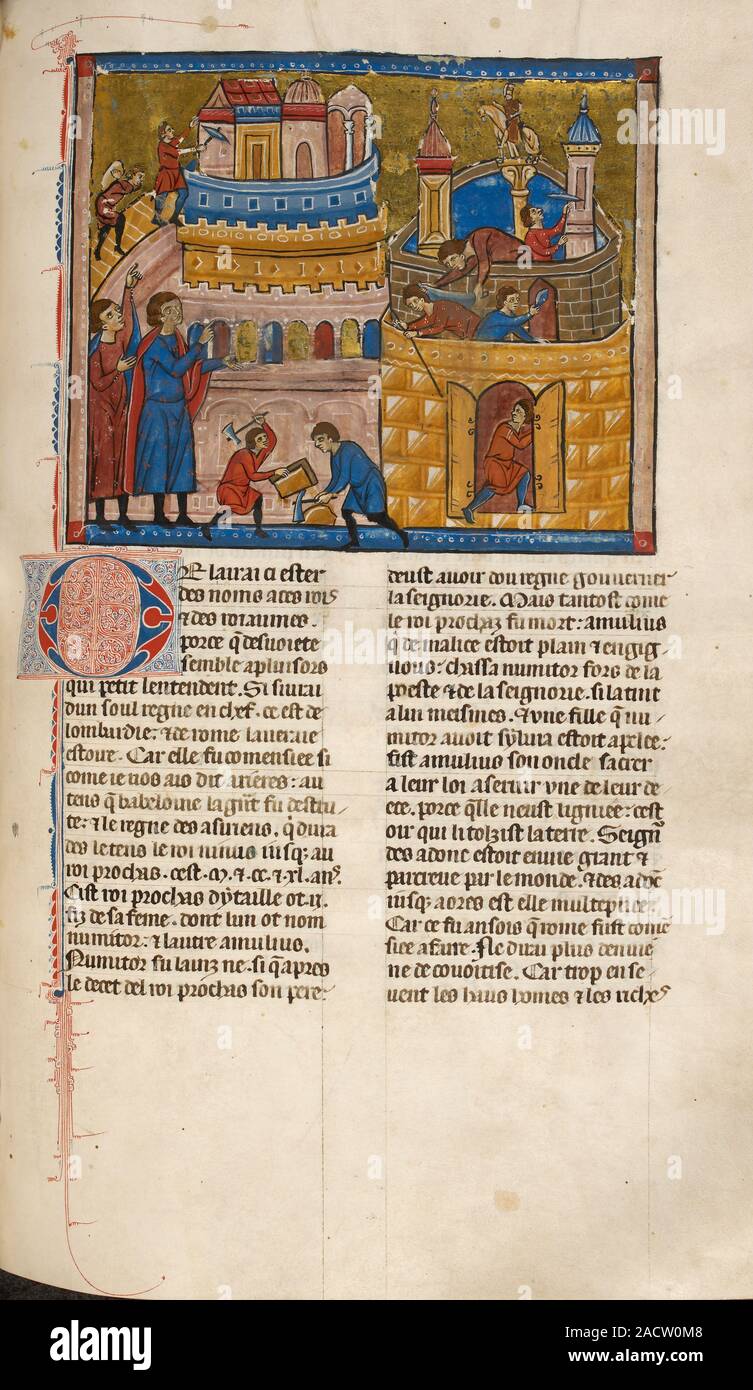 E lairai ci ester
des noms a ces rois
⁊ des roiaumes.
porce q̃ desuoiete
semble a plusors
qui petit lentendent. Si siurai
dun soul regne en chef. ce est de
lombardie: ⁊ de rome la ueraie
estoire. Car elle fu comensiee si
come ie uos ais dit arieres: au
tens q̃ babeloine la grãt fu destrui
te: ⁊ le regne des asuriens. q̇ dura
des le tens le roi ninus iusq̃s au
roi prochas. cest .M. ⁊ .cc. ⁊ .xl. ans.
Cist roi prochas dytaille ot .ij.
fiz de sa feme. dont lun ot nom
numitor: ⁊ lautre amulius.
Numitor fu lainz ne. si q̃ apres
le decet del roi prochas son pere:
deust auoir dou regne gouuerner
la seignorie. Mais tantost come
le roi prochaz fu mort: amulius
q̇ de malice estoit plain ⁊ engig
nous: chassa numitor fors de la
poeste ⁊ de la seignorie. si la tint
a lui meismes. ⁊ vne fille q̃ nu
mitor auoit syluia estoit apelee:
fist amulius son oncle sacrer
a leur loi a seruir vne de leur de
ece. porce q̃lle neust ligniee: cest
oir qui li tolsist la terre. Seign̄
des adonc estoit enuie grant ⁊
parcreue par le monde. ⁊ des adõc
iusq̃s a ores est elle multepliee.
Car ce fu ansois q̃ rome fust comẽ
siee a faire. Ne dirai plus denuie
ne de couoitise. Car trop en se
uent les haus homes ⁊ les riches
alamy
alamy
Image ID: 2ACW0M8
www.alamy.com